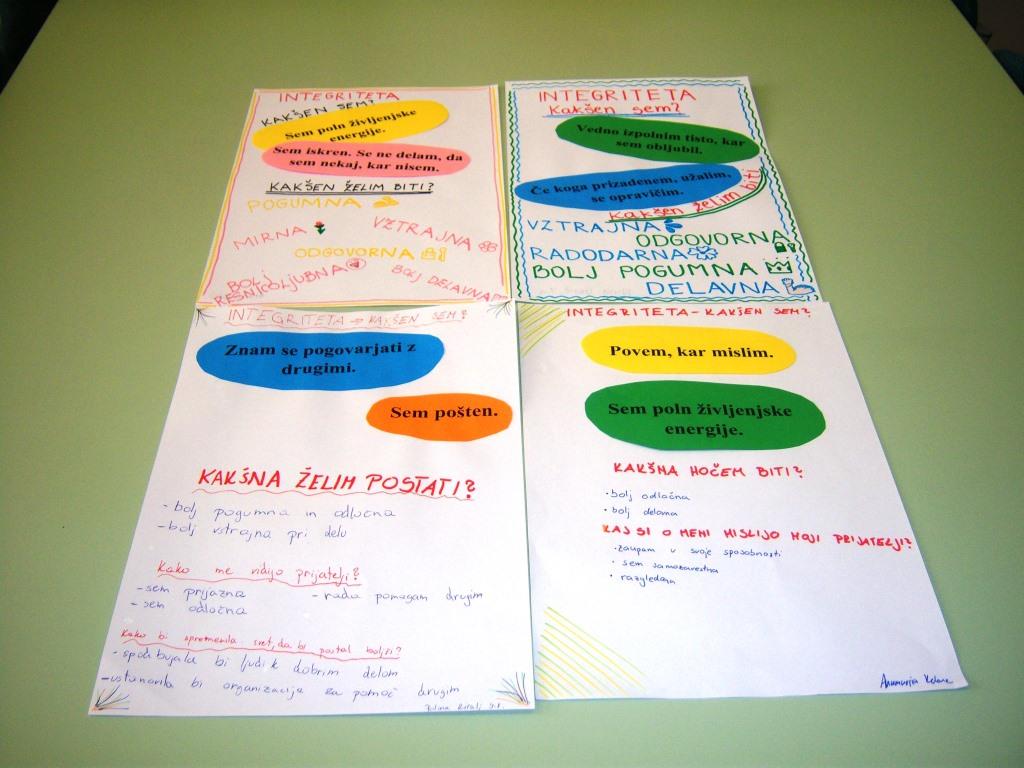 INTEGRITETA
KAKŠEN SEM?
Sem poln življenjske
energije.
Sem iskren. Se ne delam, da
sem nekaj, kar nisem.
KAKŠEN ŽELIM BITI?
POGUMNA
MIRNA
VZTRAJNA
ODGOVORNA
BOLJ
RESNICOLJUBNA
BOLJ DELAVNA
INTEGRITETA
Kakšen sem?
Vedno izpolnim tisto, kar
sem obljubil.
Če koga prizadenem, užalim,
se opravičim.
Kakšen želim biti
VZTRAJNA
ODGOVORNA
RADODARNA
BOLJ POGUMNA
DELAVNA
INTEGRITETA → KAKŠEN SEM?
Znam se pogovarjati z
drugimi.
Sem pošten.
KAKŠNA ŽELIM POSTATI?
- bolj pogumna in odločna
- bolj vstrajna pri delu
Kako me vidijo prijatelji?
- sem prijazna
- rada pomagam drugim
- sem odločna
Kako bi spremenila svet, da bi postal boljši?
- spodbujala bi ljudi k dobrim delom
- ustanovila bi organizacije za pomoč drugim
INTEGRITETA - KAKŠEN SEM?
Povem, kar mislim.
Sem poln življenjske
energije.
KAKŠNA HOČEM BITI?
• bolj odločna
• bolj delavna
KAJ SI O MENI MISLIJO MOJI PRIJATELJI?
• zaupam v svoje sposobnosti
• sem samozavestna
• razgledana